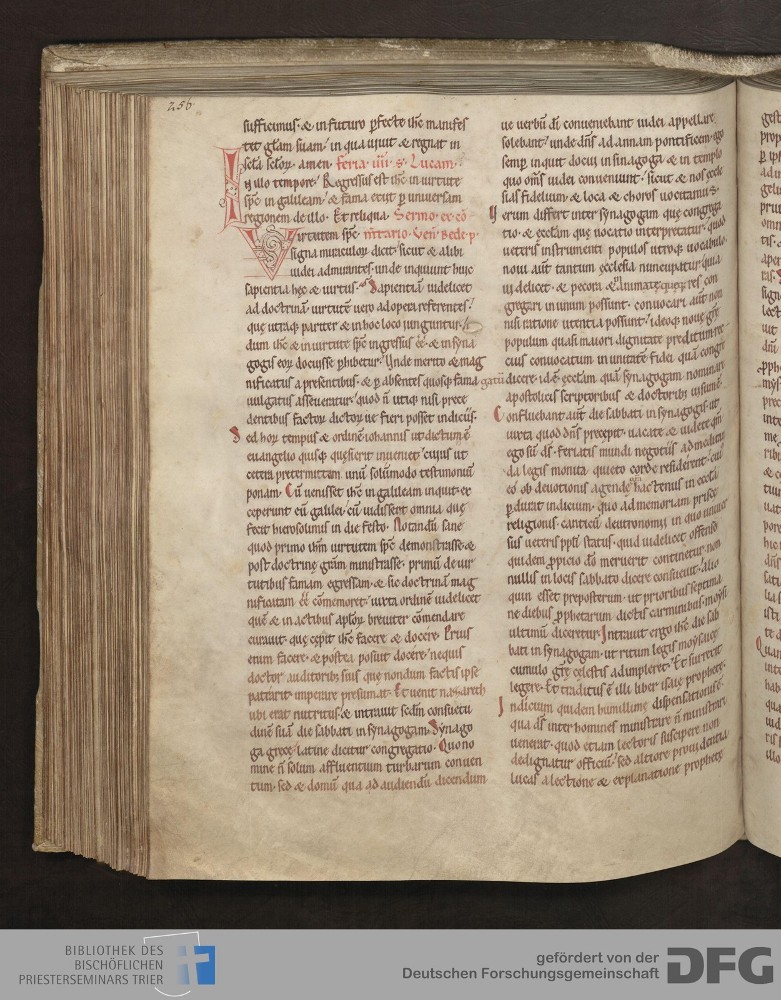 256
sufficimus· & in futuro ꝑfecte ih̅c manifes
tet gl̅am suam· in qua uiuit & regnat in
sc̅la sc̅loꝝ· amen. feria· iiii· s· Lucam·
In illo tempore· Regressus est ih̅c in uirtute
sp̅c in galileam· & fama exiit ꝑ uniuersam
regionem de illo· Et reliqua· Sermo· ex cō
Virtutem sp̅c· m̅tario· Ven̅· Bede· p̅·
signa miraculoꝝ dicit· sicut & alibi
iudei admirantes· unde inquiunt huic
sapientia hęc & uirtus· Sapientiā uidelicet
ad doctrinā· uirtutē uero ad opera referentes·
quę utraqꝫ pariter & in hoc loco iunguntur·
dum ih̅c & in uirtute sp̅c ingressus e̅e· & in syna
gogis eoꝝ docuisse ꝑhibetur· Unde merito & mag
nificatus a presentibus· & ꝑ absentes quosqꝫ fama
uulgatus asseueratur· quod n̅ utiqꝫ nisi prece
dentibus factoꝝ dictoꝝ ue fieri posset indiciis·
Sed hoꝝ tempus & ordinē iohannis ut dictum ē
euangelio quisqꝫ quęsierit inueniet· cuius ut
cetera pretermittam unū solummodo testimoniū
ponam· Cū uenisset ih̅c in galileam inquit· ex
ceperunt eū galilei· cū uidissent omnia quę
fecit hierosolimis in die festo· Notandū sane
quod primo ih̅m uirtutem sp̅c demonstrasse· &
post doctrinę gr̅am ministrasse· primū de uir
tutibus famam egressam· & sic doctrinā mag
nificatam e̅e cōmemoret· iuxta ordinē uidelicet
quē & in actibus apl̅oꝝ breuiter cōmendare
curauit· quę cępit ih̅c facere & docere· Prius
enim facere· & postea posuit docere· nequis
doctor auditoribꝫ suis quę nondum factis ipse
patrarit· imperare presumat· Et uenit nazareth
ubi erat nutritus· & intrauit scd̅m consuetu
dinē suā die sabbati in synagogam· Synago
ga grece· latine dicitur congregatio· Quo no
mine n̅ solum affluentium turbarum conuen
tum· sed & domū qua ad audiendū dicendum
ue uerbū di̅ conueniebant iudei appellare
solebant· unde dn̅s ad annam pontificem· ego
semꝑ inquit docui in sinagoga· & in templo
quo om̅s iudei conueniunt· sicut & nos eccle
sias fidelium· & loca· & choros uocitamus·
Verum differt inter synagogam quę congrega
tio· & ęcc̅lam quę uocatio interpretatur· quod
ueteris instrumenti populos utroqꝫ uocabulo·
noui aut̅ tantum ęcclesia nuncupatur· quia
uidelicet· & pecora & inanimatę quęqꝫ res con
gregari in unum possunt· conuocari aut̅ non
nisi ratione utentia possunt· ideoqꝫ nouę gr̅ę
populum quasi maiori dignitate preditum rec
cius conuocatum in unitatē fidei quā congre
gatū dicere· id ē ęcc̅lam quā synagogam nominare
apostolicis scriptoribus & doctoribꝫ uisum ē·
Confluebant aut̅ die sabbati in synagogis· ut
iuxta quod dn̅s precepit· uacate & uidete qm̅
ego su̅ ds̅· feriatis mundi negotiis ad meditan
da legis monita quieto corde residerent· cui
eō ob deuotionis agende hactenus in ecc̅la
ꝑdurat indicium· quo ad memoriam prisce
religionis· canticū deutronomii in quo uniuer
sus ueteris ppl̅i status· quid uidelicet offenso
quidem ꝓpicio dō meruerit continetur· non
nullis in locis sabbato dicere consueuit· alio
quin esset preposterum· ut prioribus septima
ne diebus ꝓphetarum dictis carminibus· moysi
ultimū diceretur· Intrauit ergo ih̅c die sab
bati in synagogam· ut ritum legis moysaice
cumulo gr̅ę cęlestis adimpleret· Et surrexit
legere· Et traditus ē illi liber isaię prophetę·
Indicium quidem humillimę dispensationis ē·
qua ds̅ inter homines ministrare n̅ ministrari
uenerat· quod etiam lectoris suscipere non
dedignatur officiū· sed altiore prouidentia
lucas a lectione & explanatione prophetę
BIBLIOTHEK DES
BISCHÖFLICHEN
PRIESTERSEMINARS TRIER
gefördert von der
Deutschen Forschungsgemeinschaft
DFG